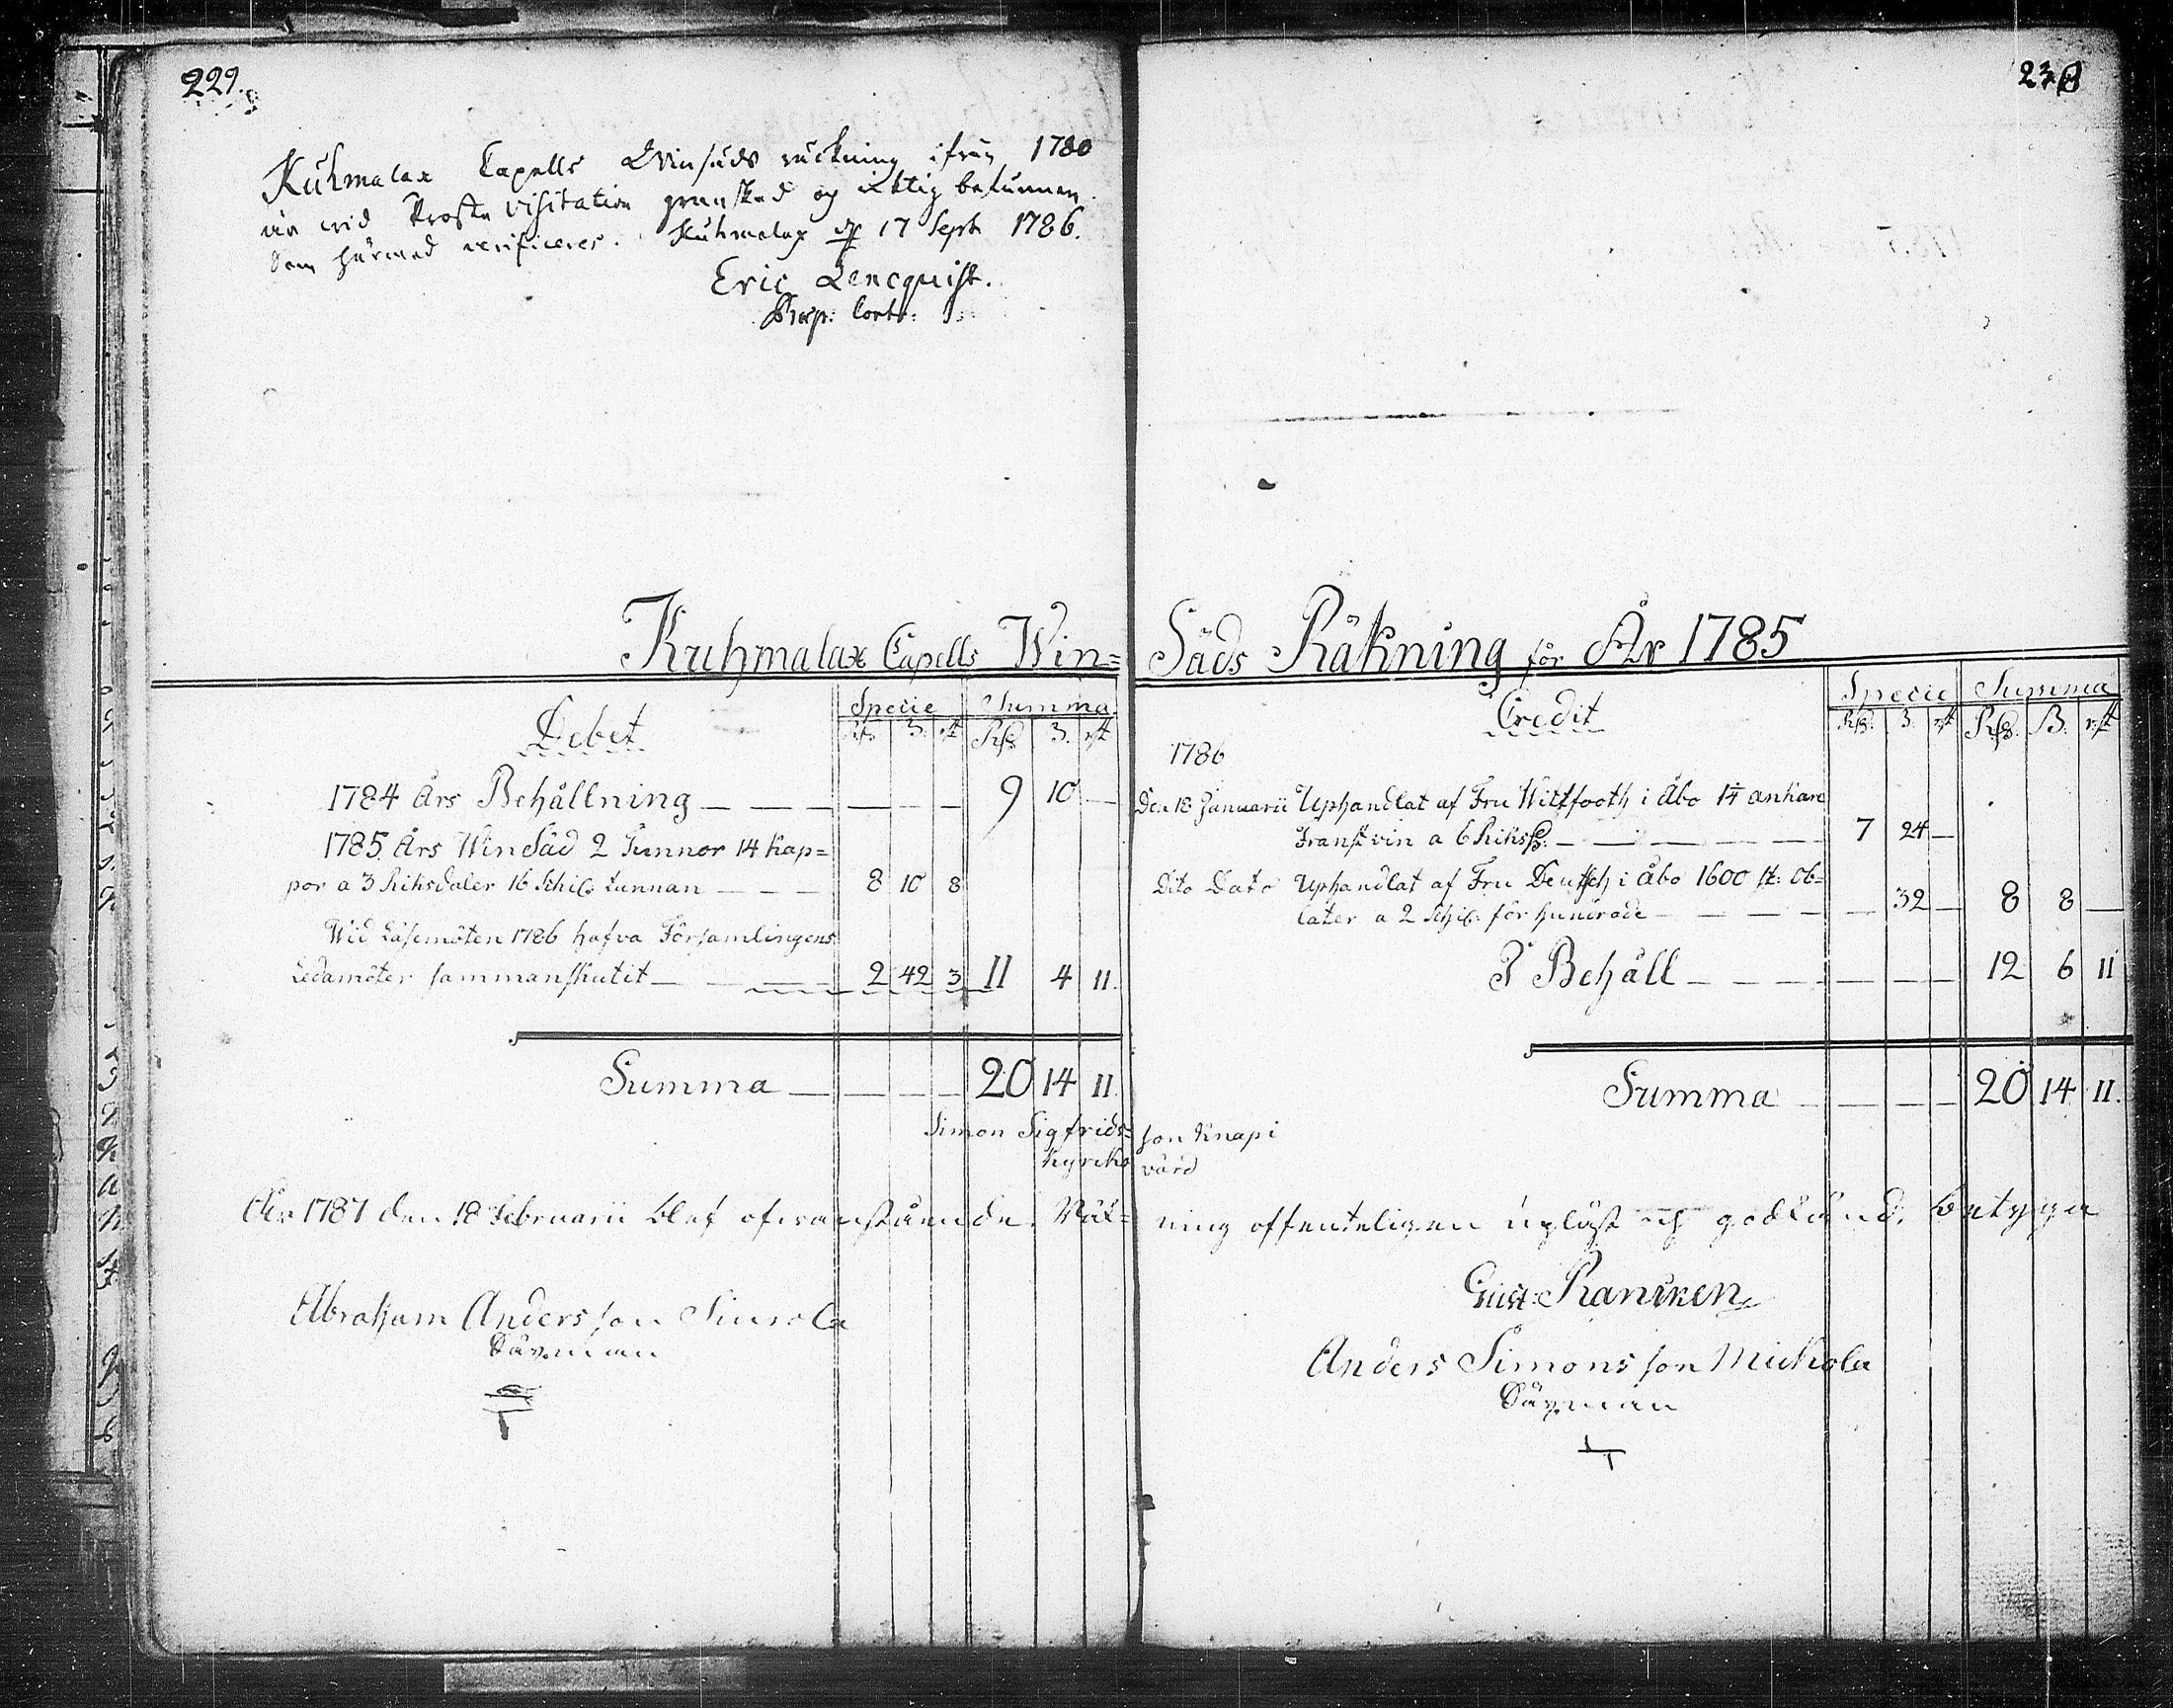 229.
Kuhmalax Capells Winsäds räckning ifrån 1780
är wid Prosten Visitation granskad og riktig befunnen
som härmed verificeres. Kuhmalax d. 17 Sept 1786.
Eric Lencquist.
Kuhmalax Capells Win=
Debet
Specie Summa
Rd. ß. rst Rd. ß. rst
1784 Års Behållning — — — 9 10 —
1785 Års Win Säd 2 Tunnor 14 Kap=
por a 3 Riksdaler 16 Schil: tunnan — — — 8 10 8
Wid Läsemöten 1786 hafva Församlingens
Ledamöter sammanskutit — — 2 42 3 11 4 11.
Summa — — — — 20 14 11.
Simon Sigfrids=
Kyrko
År 1787 den 18 Februarii blef ofvanstående Räk=
Abraham Andersson Simola
Säxman
230
Säds Räkning för År 1785
Credit
Specie Summa
Rd. ß. rst Rd. ß. rst
1786
Den 18 Januarii Uphandlat af Fru Wittfooth i Åbo 1¼ ankare
Franst vin a 6 Riksd. — — — 7 24 —
Dito Dato Uphandlat af Fru Deutsch i Åbo 1600 st: ob=
later a 2 Schil: för hundrade — — — 32 — 8 8 —
I Behåll — — — — 12 6 11
Summa — — — 20 14 11.
son Knapi
värd
ning offenteligen upläst och godkänd, betyga
Gust: Rancken
Anders Simonsson Mickola
Säxman